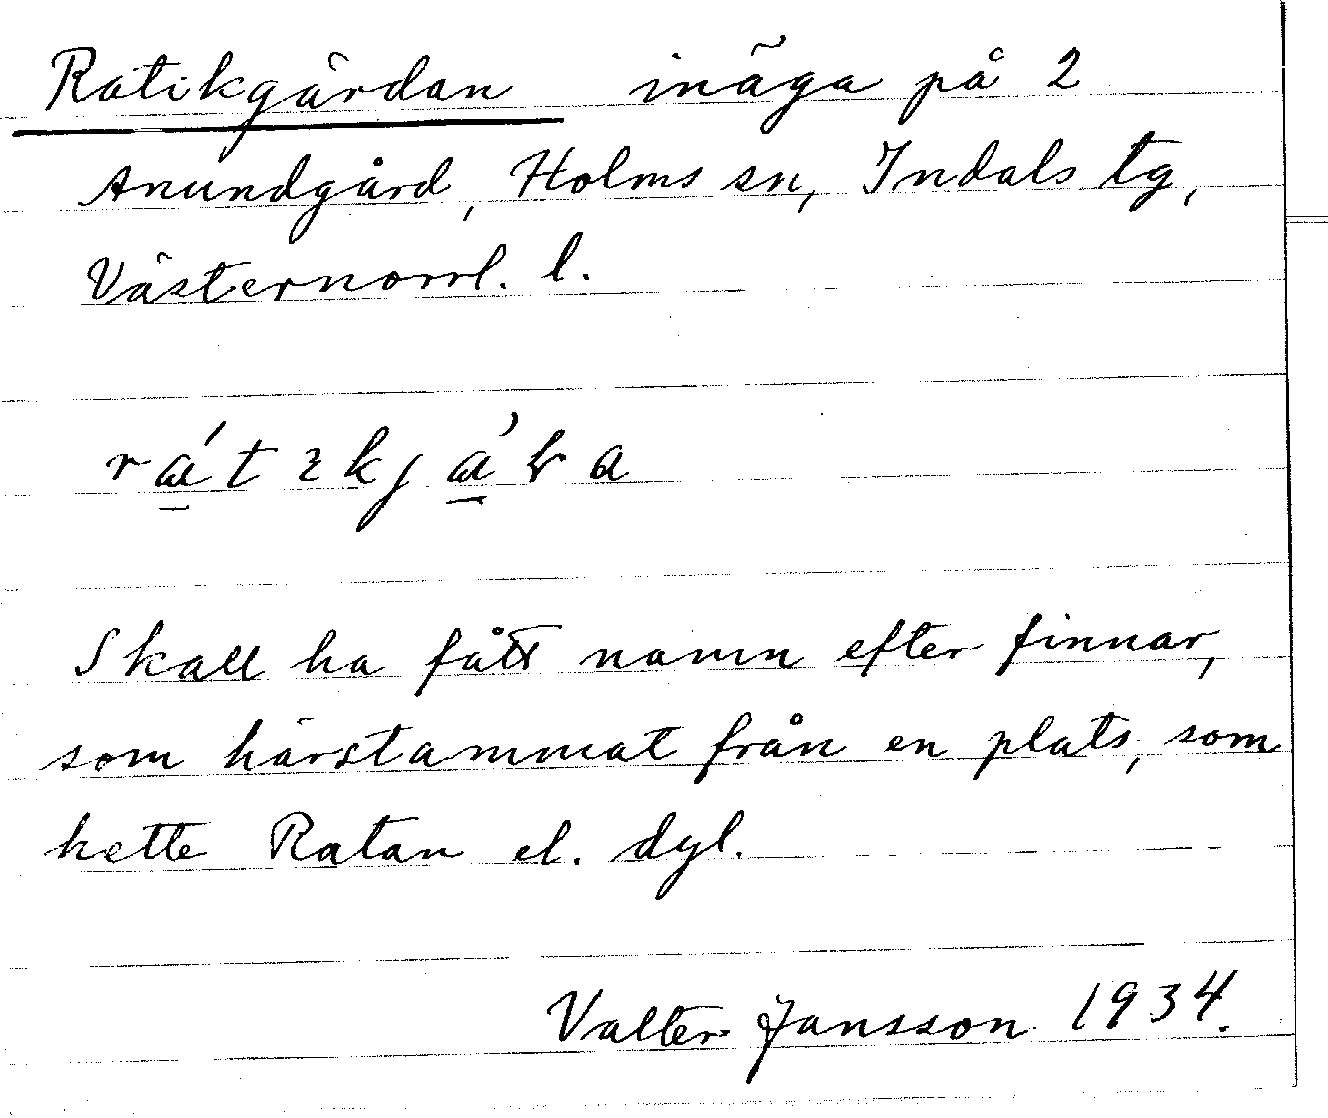 Ratikgärdan inäga på 2
Anundgård, Holms sn, Indals tg,
Västernorrl. l.
Skall ha fått namn efter finnar,
som härstammat från en plats, som
hette Ratan el. dyl.
Valter Jansson 1934.